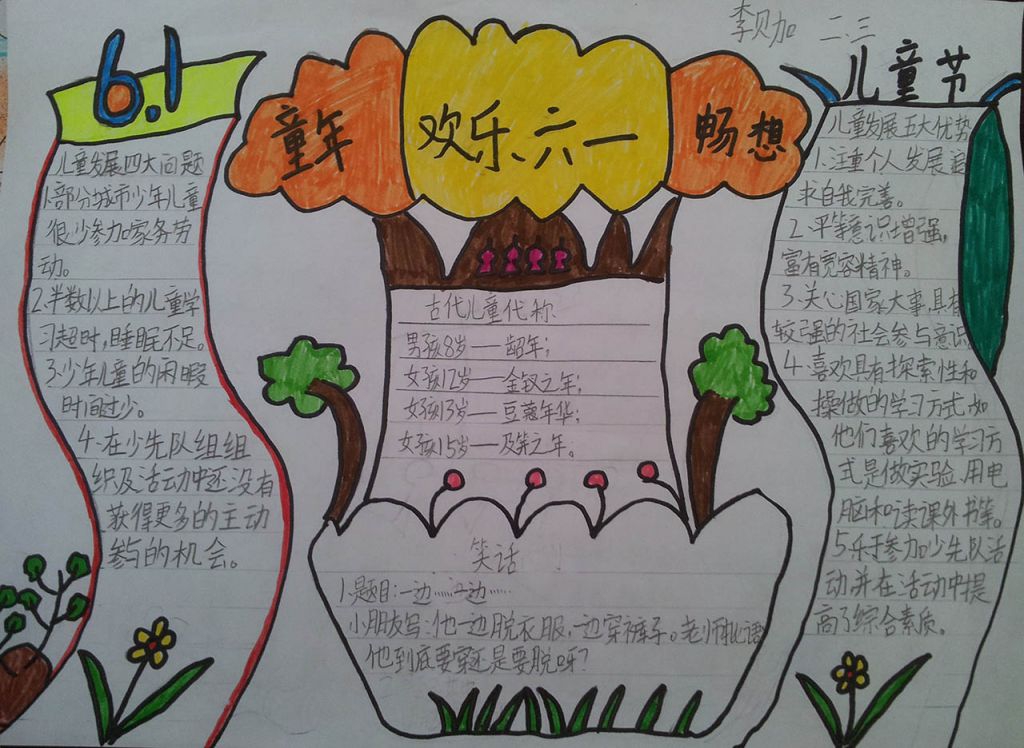 李贝加 二.三
6.1
童年
欢乐六一
畅想
儿童节
儿童发展四大问题
1.部分城市少年儿童
很少参加家务劳
动。
2.半数以上的儿童学
习超时,睡眠不足。
3.少年儿童的闲暇
时间过少。
4.在少先队组组
织及活动中还没有
获得更多的主动
参与的机会。
古代儿童代称
男孩8岁——龆年;
女孩12岁——金钗之年;
女孩13岁——豆蔻年华;
女孩15岁——及笄之年。
笑话
1.题目:一边……一边……
小朋友写:他一边脱衣服,一边穿裤子。老师批语
他到底要穿还是要脱呀?
儿童发展五大优势
1.注重个人发展追
求自我完善。
2.平等意识增强,
富有宽容精神。
3.关心国家大事,具有
较强的社会参与意识
4.喜欢具有探索性和
操做的学习方式如
他们喜欢的学习方
式是做实验、用电
脑和读课外书等。
5.乐于参加少先队活
动并在活动中提
高了综合素质。